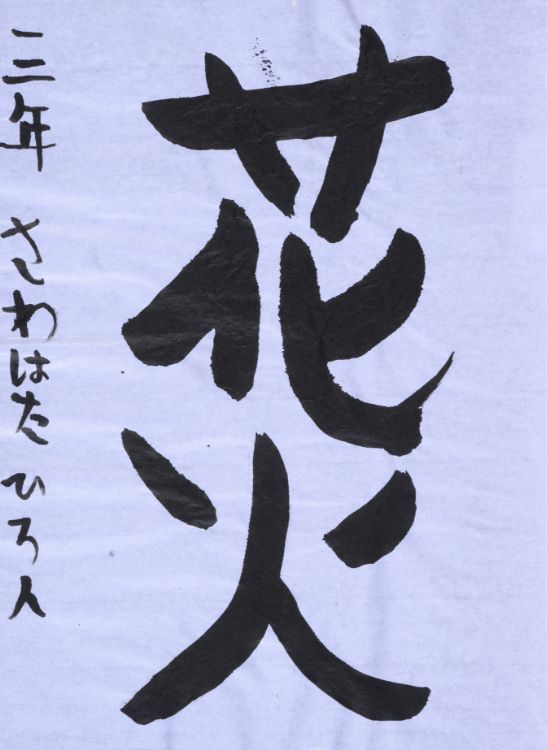 花火
三年 さわはたひろ人